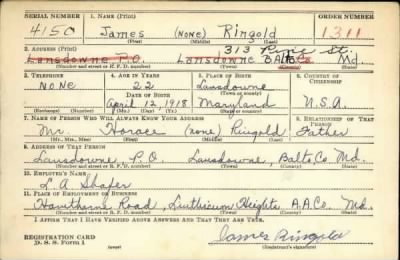 SERIAL NUMBER 1. NAME (Print) ORDER NUMBER
4150 James (NONE) Ringold 1311
(First) (Middle) (Last)
2. ADDRESS (Print) 313 St.
Lansdowne P.O. Lansdowne Balto Co Md.
(Number and street or R. F. D. number) (Town) (County) (State)
3. TELEPHONE 4. AGE IN YEARS 5. PLACE OF BIRTH 6. COUNTRY OF CITIZENSHIP
NONE 22 Lansdowne
DATE OF BIRTH (Town or county)
April 12, 1918 Maryland U.S.A.
(Exchange) (Number) (Mo.) (Day) (Yr.) (State or country)
7. NAME OF PERSON WHO WILL ALWAYS KNOW YOUR ADDRESS 8. RELATIONSHIP OF THAT PERSON
Mr. Horace (none) Ringold Father
(Mr., Mrs., Miss) (First) (Middle) (Last)
9. ADDRESS OF THAT PERSON
Lansdowne P.O. Lansdowne, Balto. Co. Md.
(Number and street or R. F. D. number) (Town) (County) (State)
10. EMPLOYER'S NAME
L. A. Shafer
11. PLACE OF EMPLOYMENT OR BUSINESS
Hawthorne Road, Linthicum Heights, A.A. Co. Md.
(Number and street or R. F. D. number) (Town) (County) (State)
I AFFIRM THAT I HAVE VERIFIED ABOVE ANSWERS AND THAT THEY ARE TRUE.
REGISTRATION CARD
D. S. S. Form 1 (over) James Ringold
(Registrant's signature)